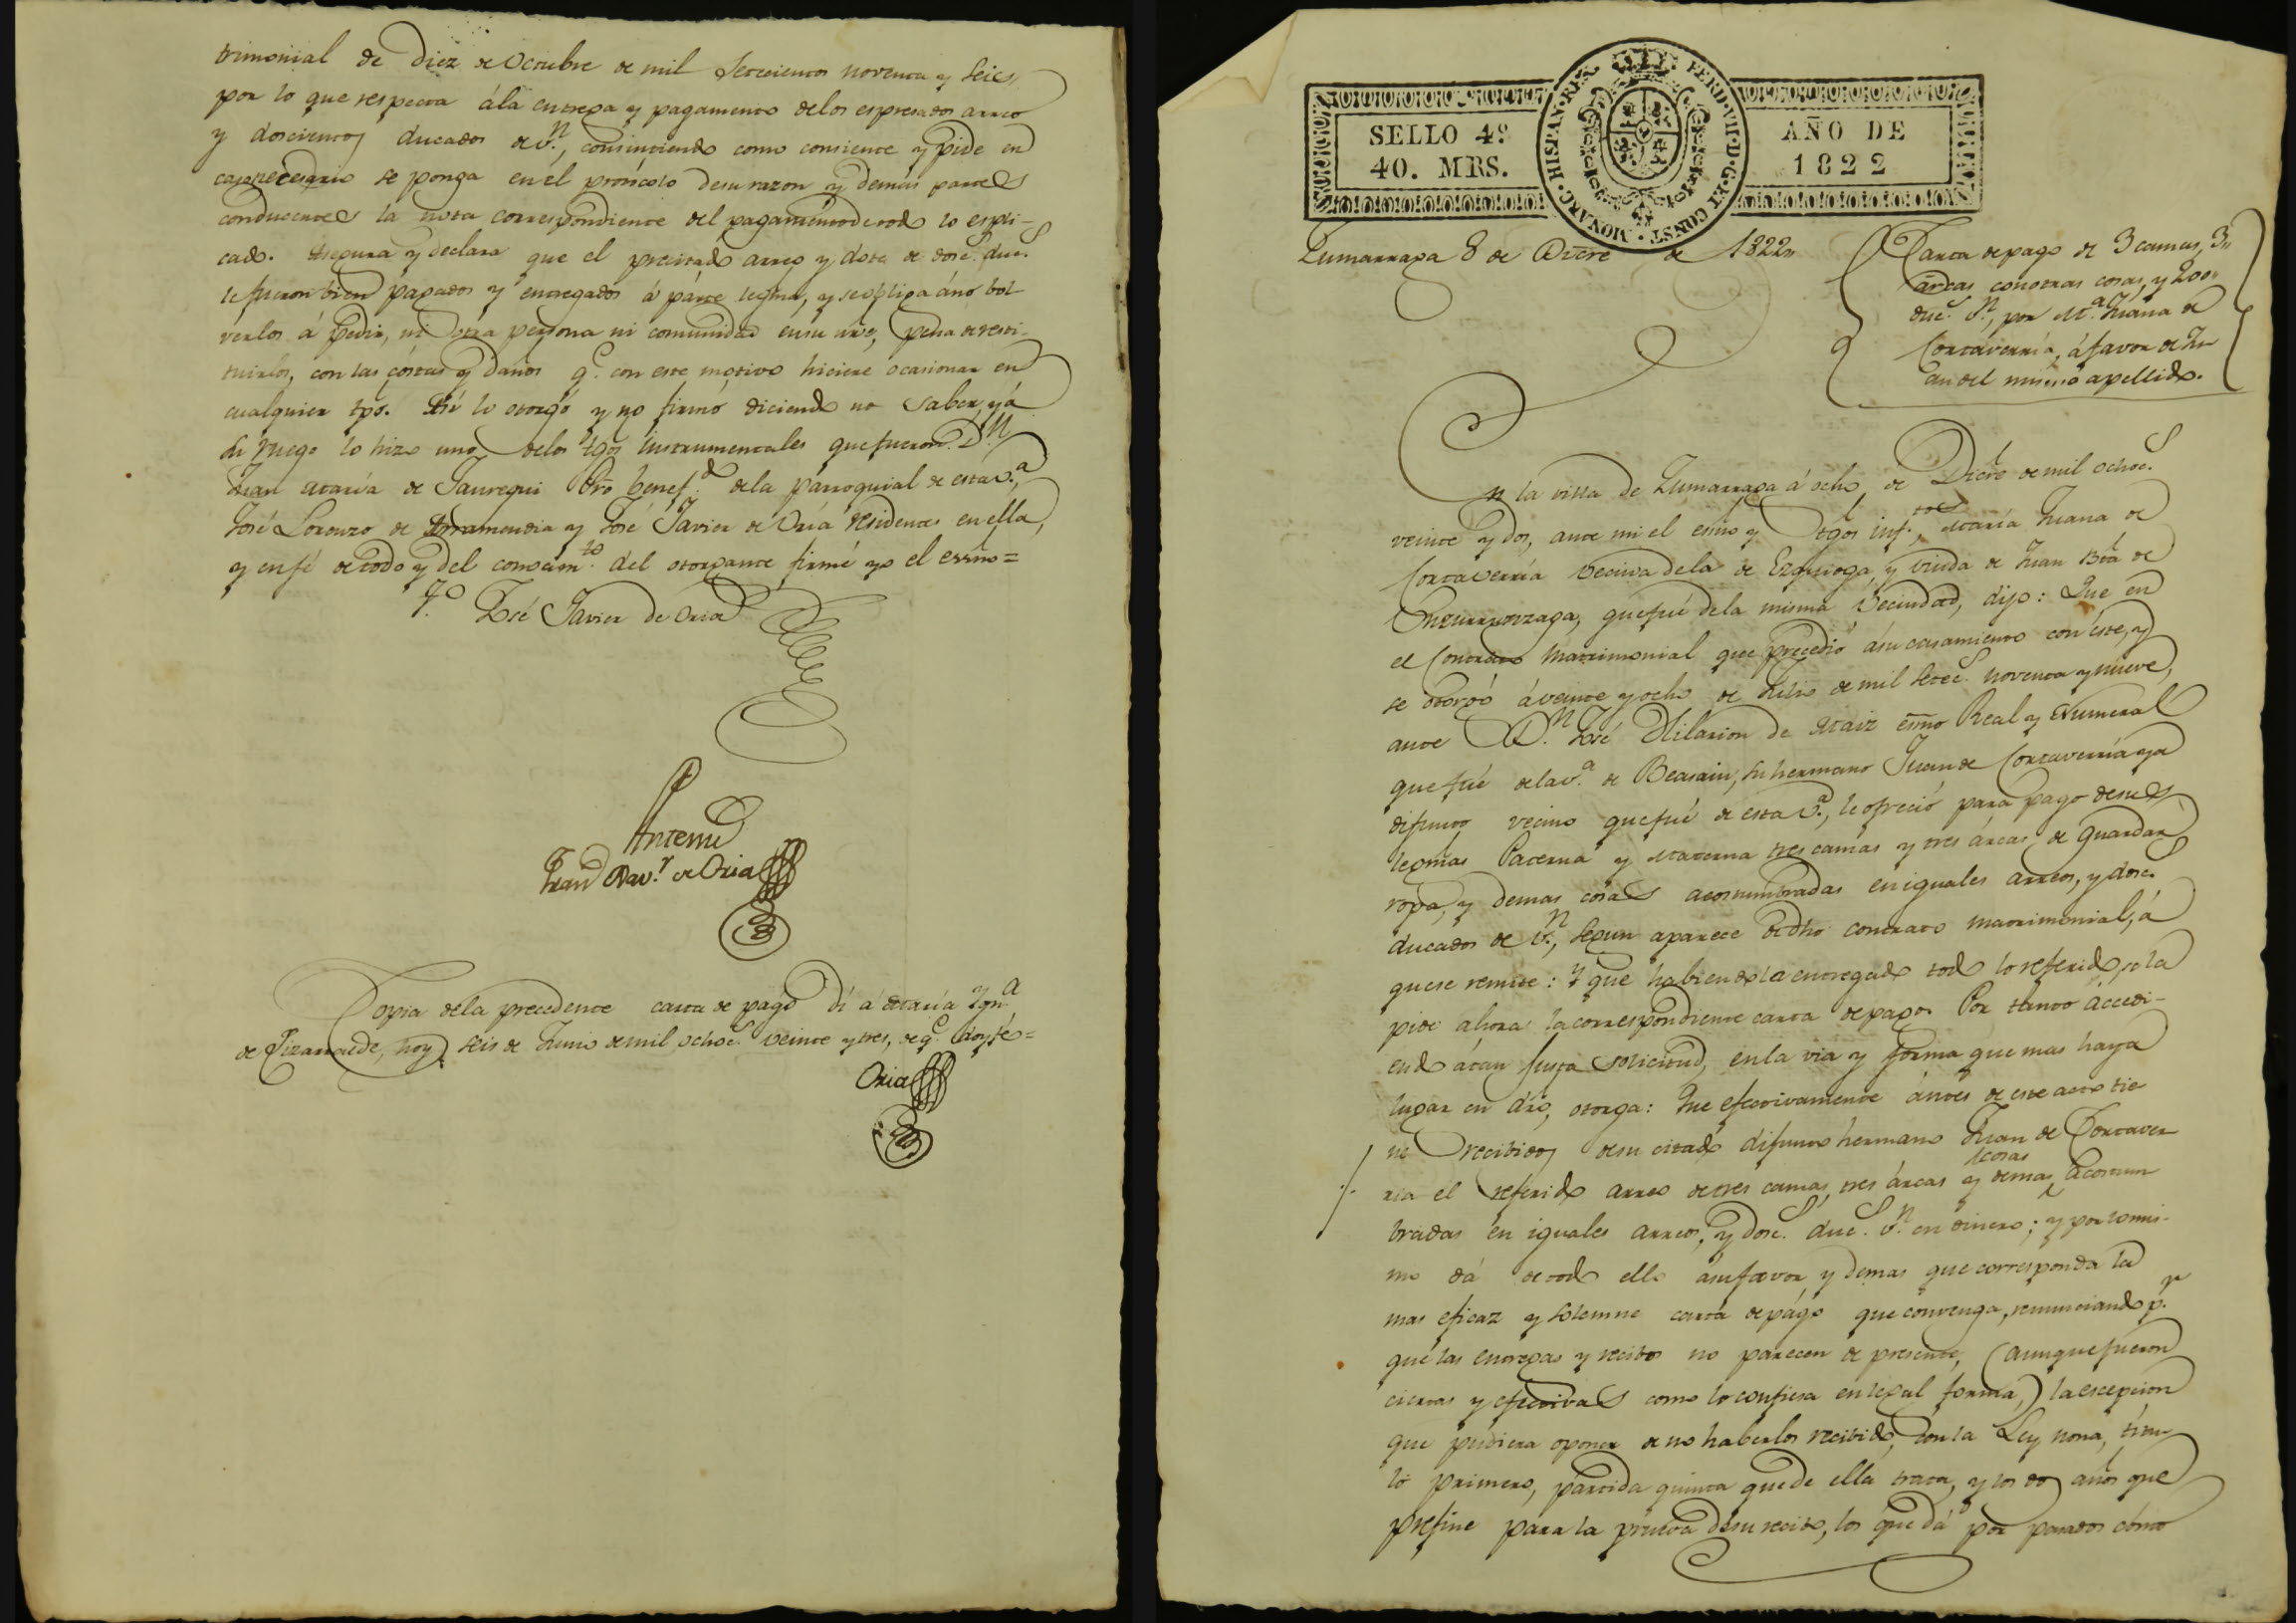 trimonial de Diez de Octubre de mil setecientos noventa y seis,
por lo que respecta á la entrega y pagamento de los espresados arreo
y doscientos ducados de v.n, consintiendo como consiente y pide en
caso necesario se ponga en el protócolo de su razon y demás partes
conducentes la nota correspondiente del pagamento de todo lo espli-
cado. Asegura y declara que el precitado arreo y dote de dosc.s duc.s
le fueron bien pagados y entregados á parte legma, y se obliga á no bol
verlos á pedir, ni otra persona ni comunidad en su nre, pena de resti-
tuirlos, con las cóstas y daños q.e con este motivo hiciere ocasionar en
cualquier tpo. Así lo otorgó y no firmó diciendo no saber, y á
su ruego lo hizo uno de los tgos instrumentales que fueron D.n
Juan María de Jauregui Pro benef.do de la parroquial de esta v.a,
José Lorenzo de y José Javier de Oria residentes en ella,
y en fé de todo y del conocim.to del otorgante firmé yo el essno=
T.o José Javier de Oria
Antemi
Juan Xav.r de Oria
Copia de la precedente carta de pago dí á María Ign.a
de hoy seis de Junio de mil ochoc.s veinte y tres, de q.e doy fé=
Oria
MONARC·HISPAN·REX· FERD·VII·D·G·ET CONST·
SELLO 4º
40. MRS.
AÑO DE
1822
Zumarraga 8 de Dicre de 1822
Carta de pago de 3 camas, 3
arcas con otras cosas, y 200
duc.s v.n, por M.a Juana de
Cortaverria, á favor de Ju-
an del mismo apellido.
En la villa de Zumarraga á ocho de Dicre de mil ochoc.s
veinte y dos, ante mi el essno y tgos inf.tos María Juana de
Cortaverria vecina de la de Ezquioga, y viuda de Juan Bta de
que fué de la misma vecindad, dijo: Que en
el Contrato matrimonial que precedió á su casamiento con éste, y
se otorgó á veinte y ocho de Julio de mil setec.s noventa y nueve,
ante D.n José Hilarion de Maiz essno Real y Numeral
que fué de la v.a de Beasain, su hermano Juan de Cortaverria ya
difunto vecino que fué de esta v.a, le ofreció para pago de sus
legmas Paterna y Materna tres camas y tres árcas de guardar
ropa, y demas cosas acostumbradas en iguales arreos, y dosc.s
ducados de v.n, segun aparece de dho contrato matrimonial, á
que se remite: Y que habiendola entregado todo lo referido, se la
pide ahora la correspondiente carta de pago. Por tanto accedi-
endo á tan justa solicitud, en la via y forma que mas haya
lugar en dro, otorga: Que efectivamente ántes de este acto tie
ne recibidos de su citado difunto hermano Juan de Cortaver
ria el referido arreo de tres camas, tres árcas y demas cosas acostum
bradas en iguales arreos, y dosc.s duc.s v.n en dinero; y por lo mis-
mo dá de todo ello á su favor, y demas que corresponda la
mas eficaz y solemne carta de págo que convenga, renunciando p.r
que las entregas y recibos no parecen de presente, (aunque fueron
ciertas y efectivas como lo confiesa en legal forma,) la escepcion
que pudiera oponer de no haberlos recibido, con la Ley nona, títu
lo primero, partida quinta que de ella trata, y los dos años que
prefine para la prueva de su recibo, los que dá por pasados cómo